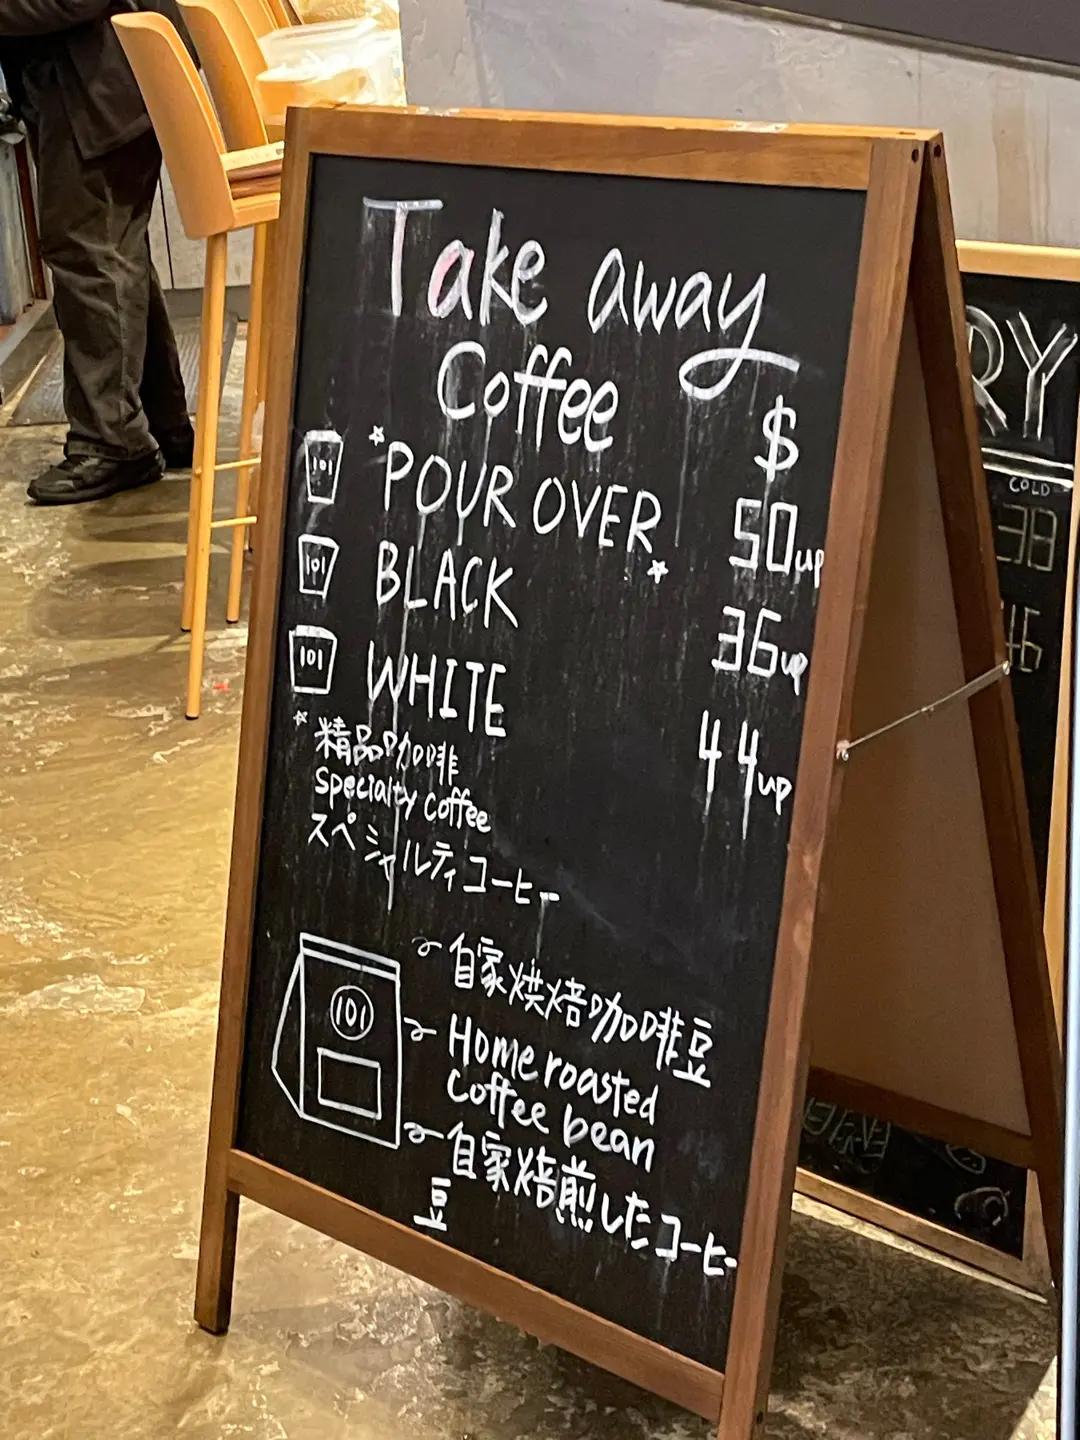 Take away
Coffee
$
101
POUR OVER
50up
101
BLACK
36up
101
WHITE
44up
精品咖啡
specialty coffee
スペシャルティコーヒー
101
自家烘焙咖啡豆
Home roasted
coffee bean
自家焙煎したコーヒー
豆
RY
COLD
38
46